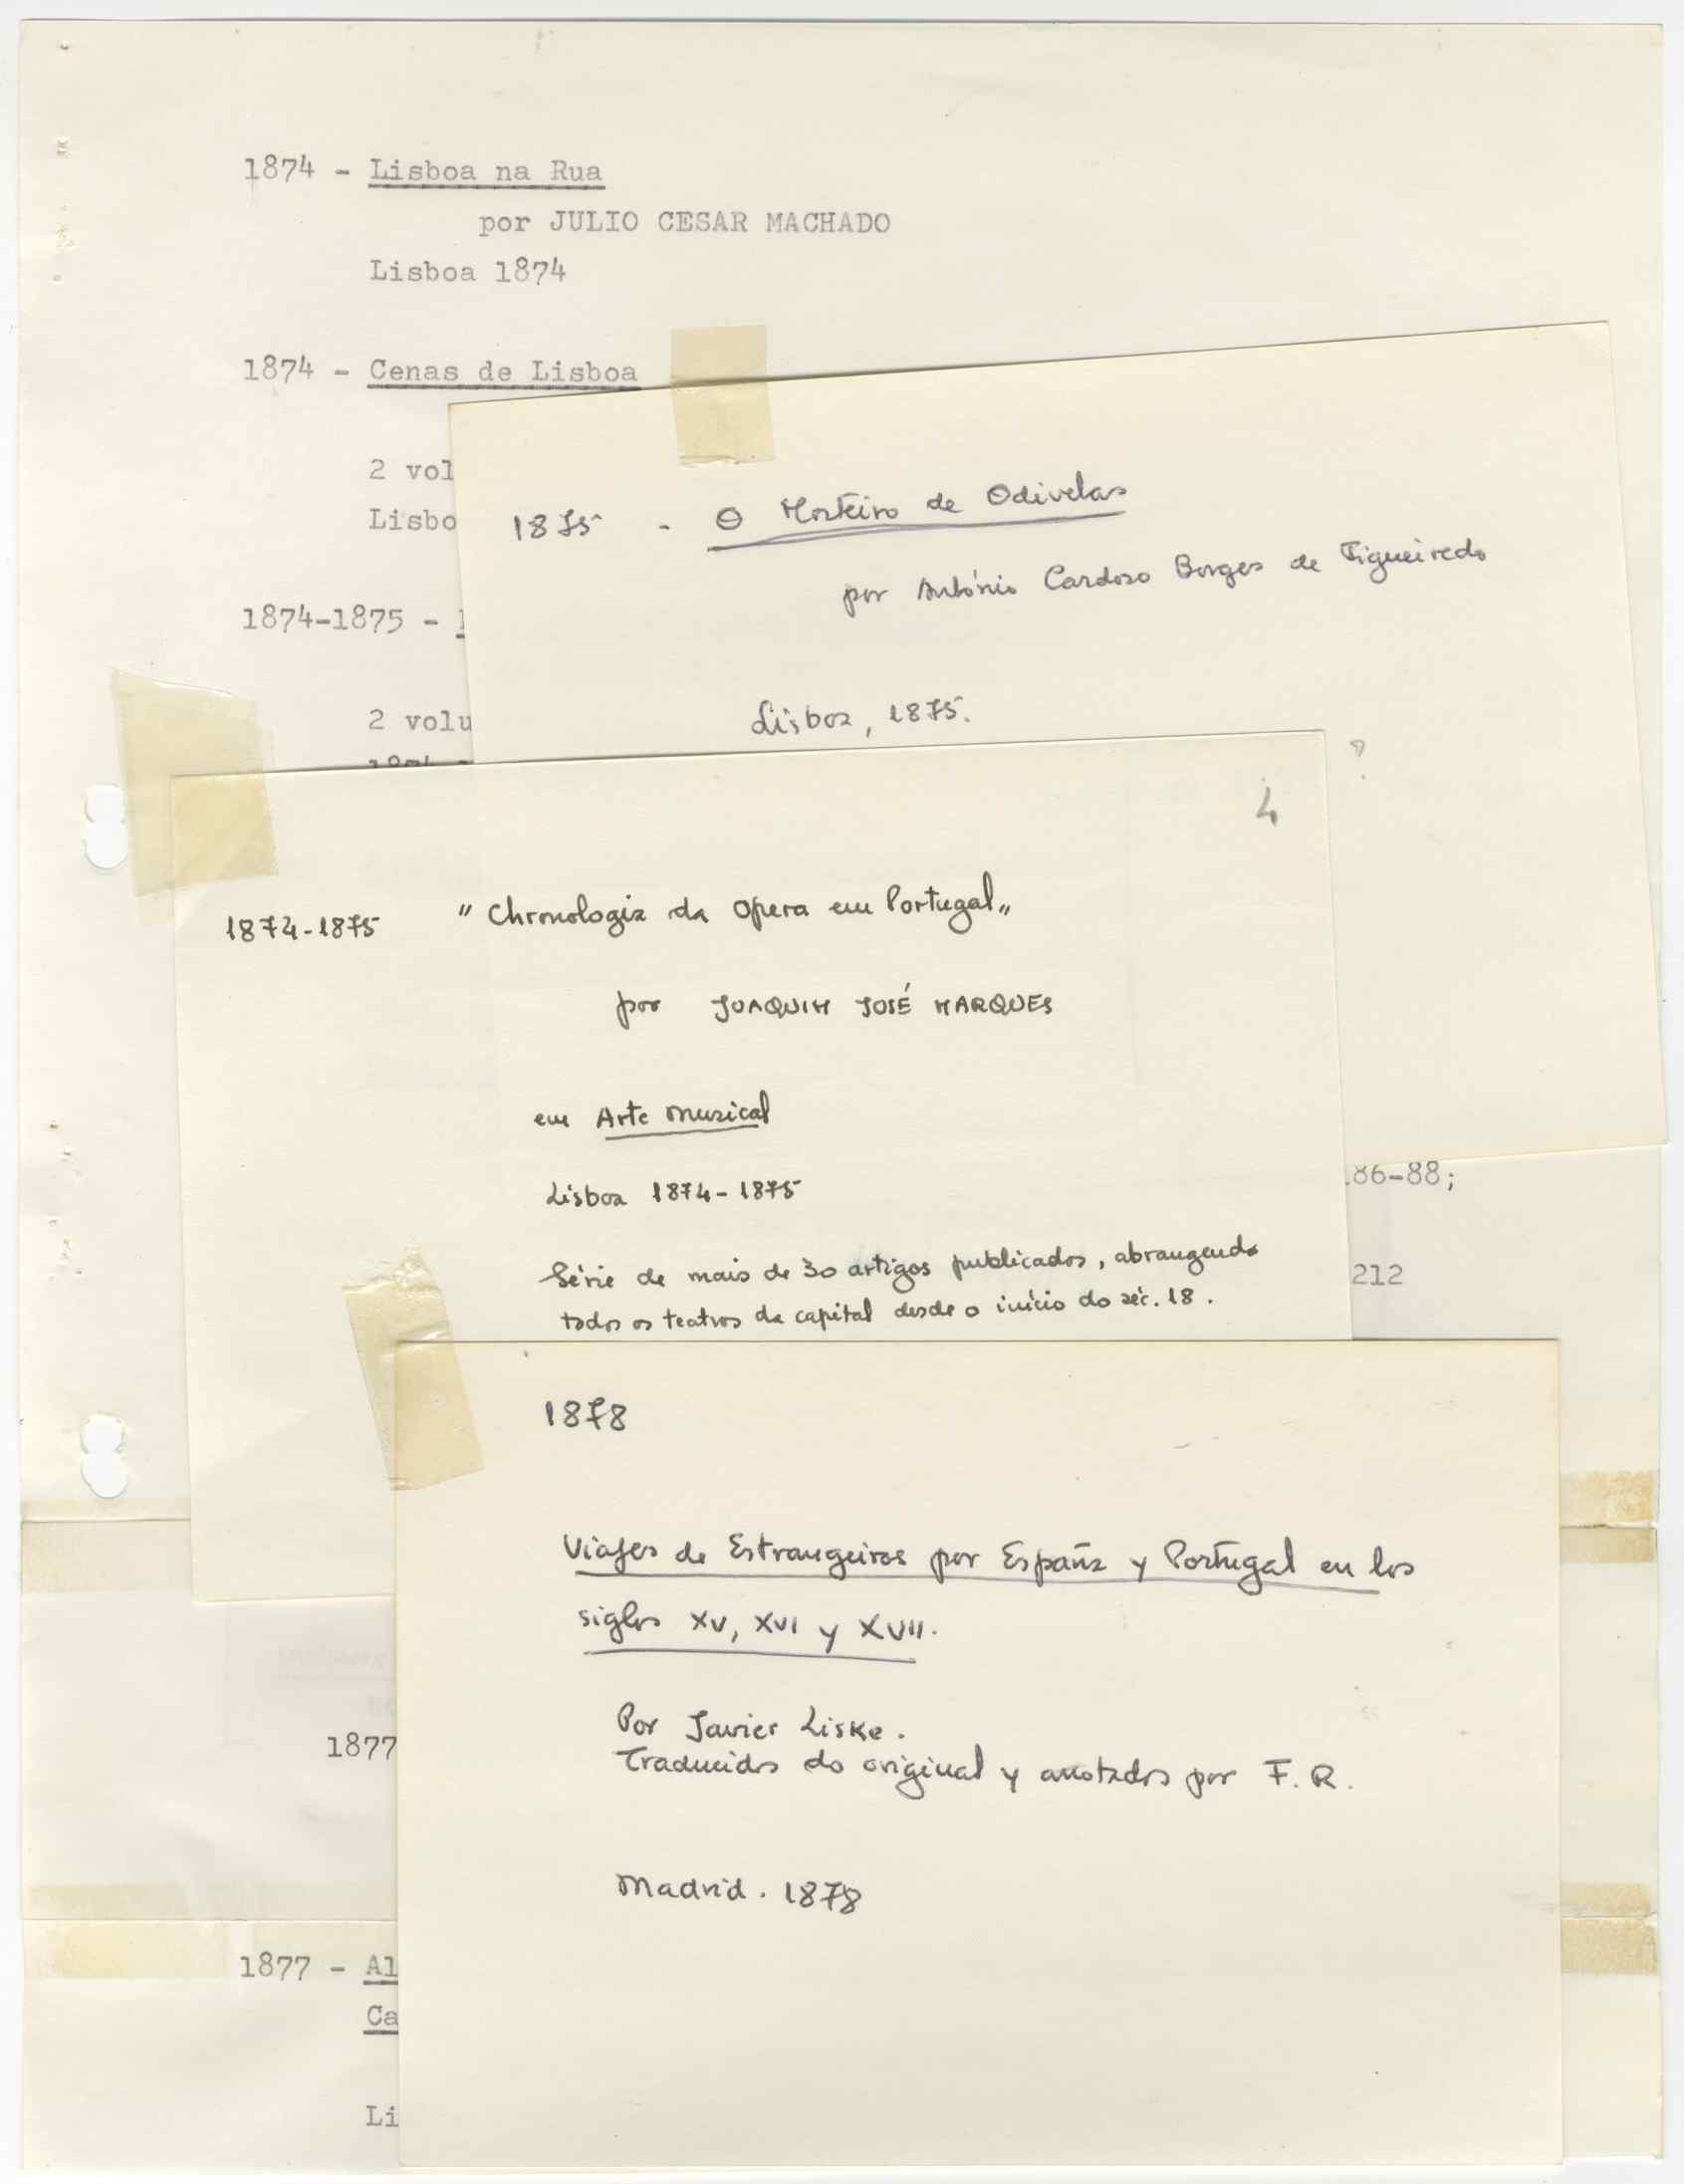 1874 - Lisboa na Rua
por JULIO CESAR MACHADO
Lisboa 1874
1874 - Cenas de Lisboa
2 vol
Lisbo
1874-1875 -
2 volu
1875 - O Mosteiro de Odivelas
por António Cardoso Borges de Figueiredo
Lisboa, 1875.
?
4
1874-1875 "Chronologia da Opera em Portugal"
por JOAQUIM JOSÉ MARQUES
em Arte Musical
Lisboa 1874-1875
Série de mais de 30 artigos publicados, abrangendo
todos os teatros da capital desde o início do séc. 18.
86-88;
212
1878
Viajes de Estrangeiros por España y Portugal en los
siglos XV, XVI y XVII.
Por Javier Liske.
Traducidos do original y anotados por F. R.
Madrid. 1878
1877
1877 - Al
Ca
Li